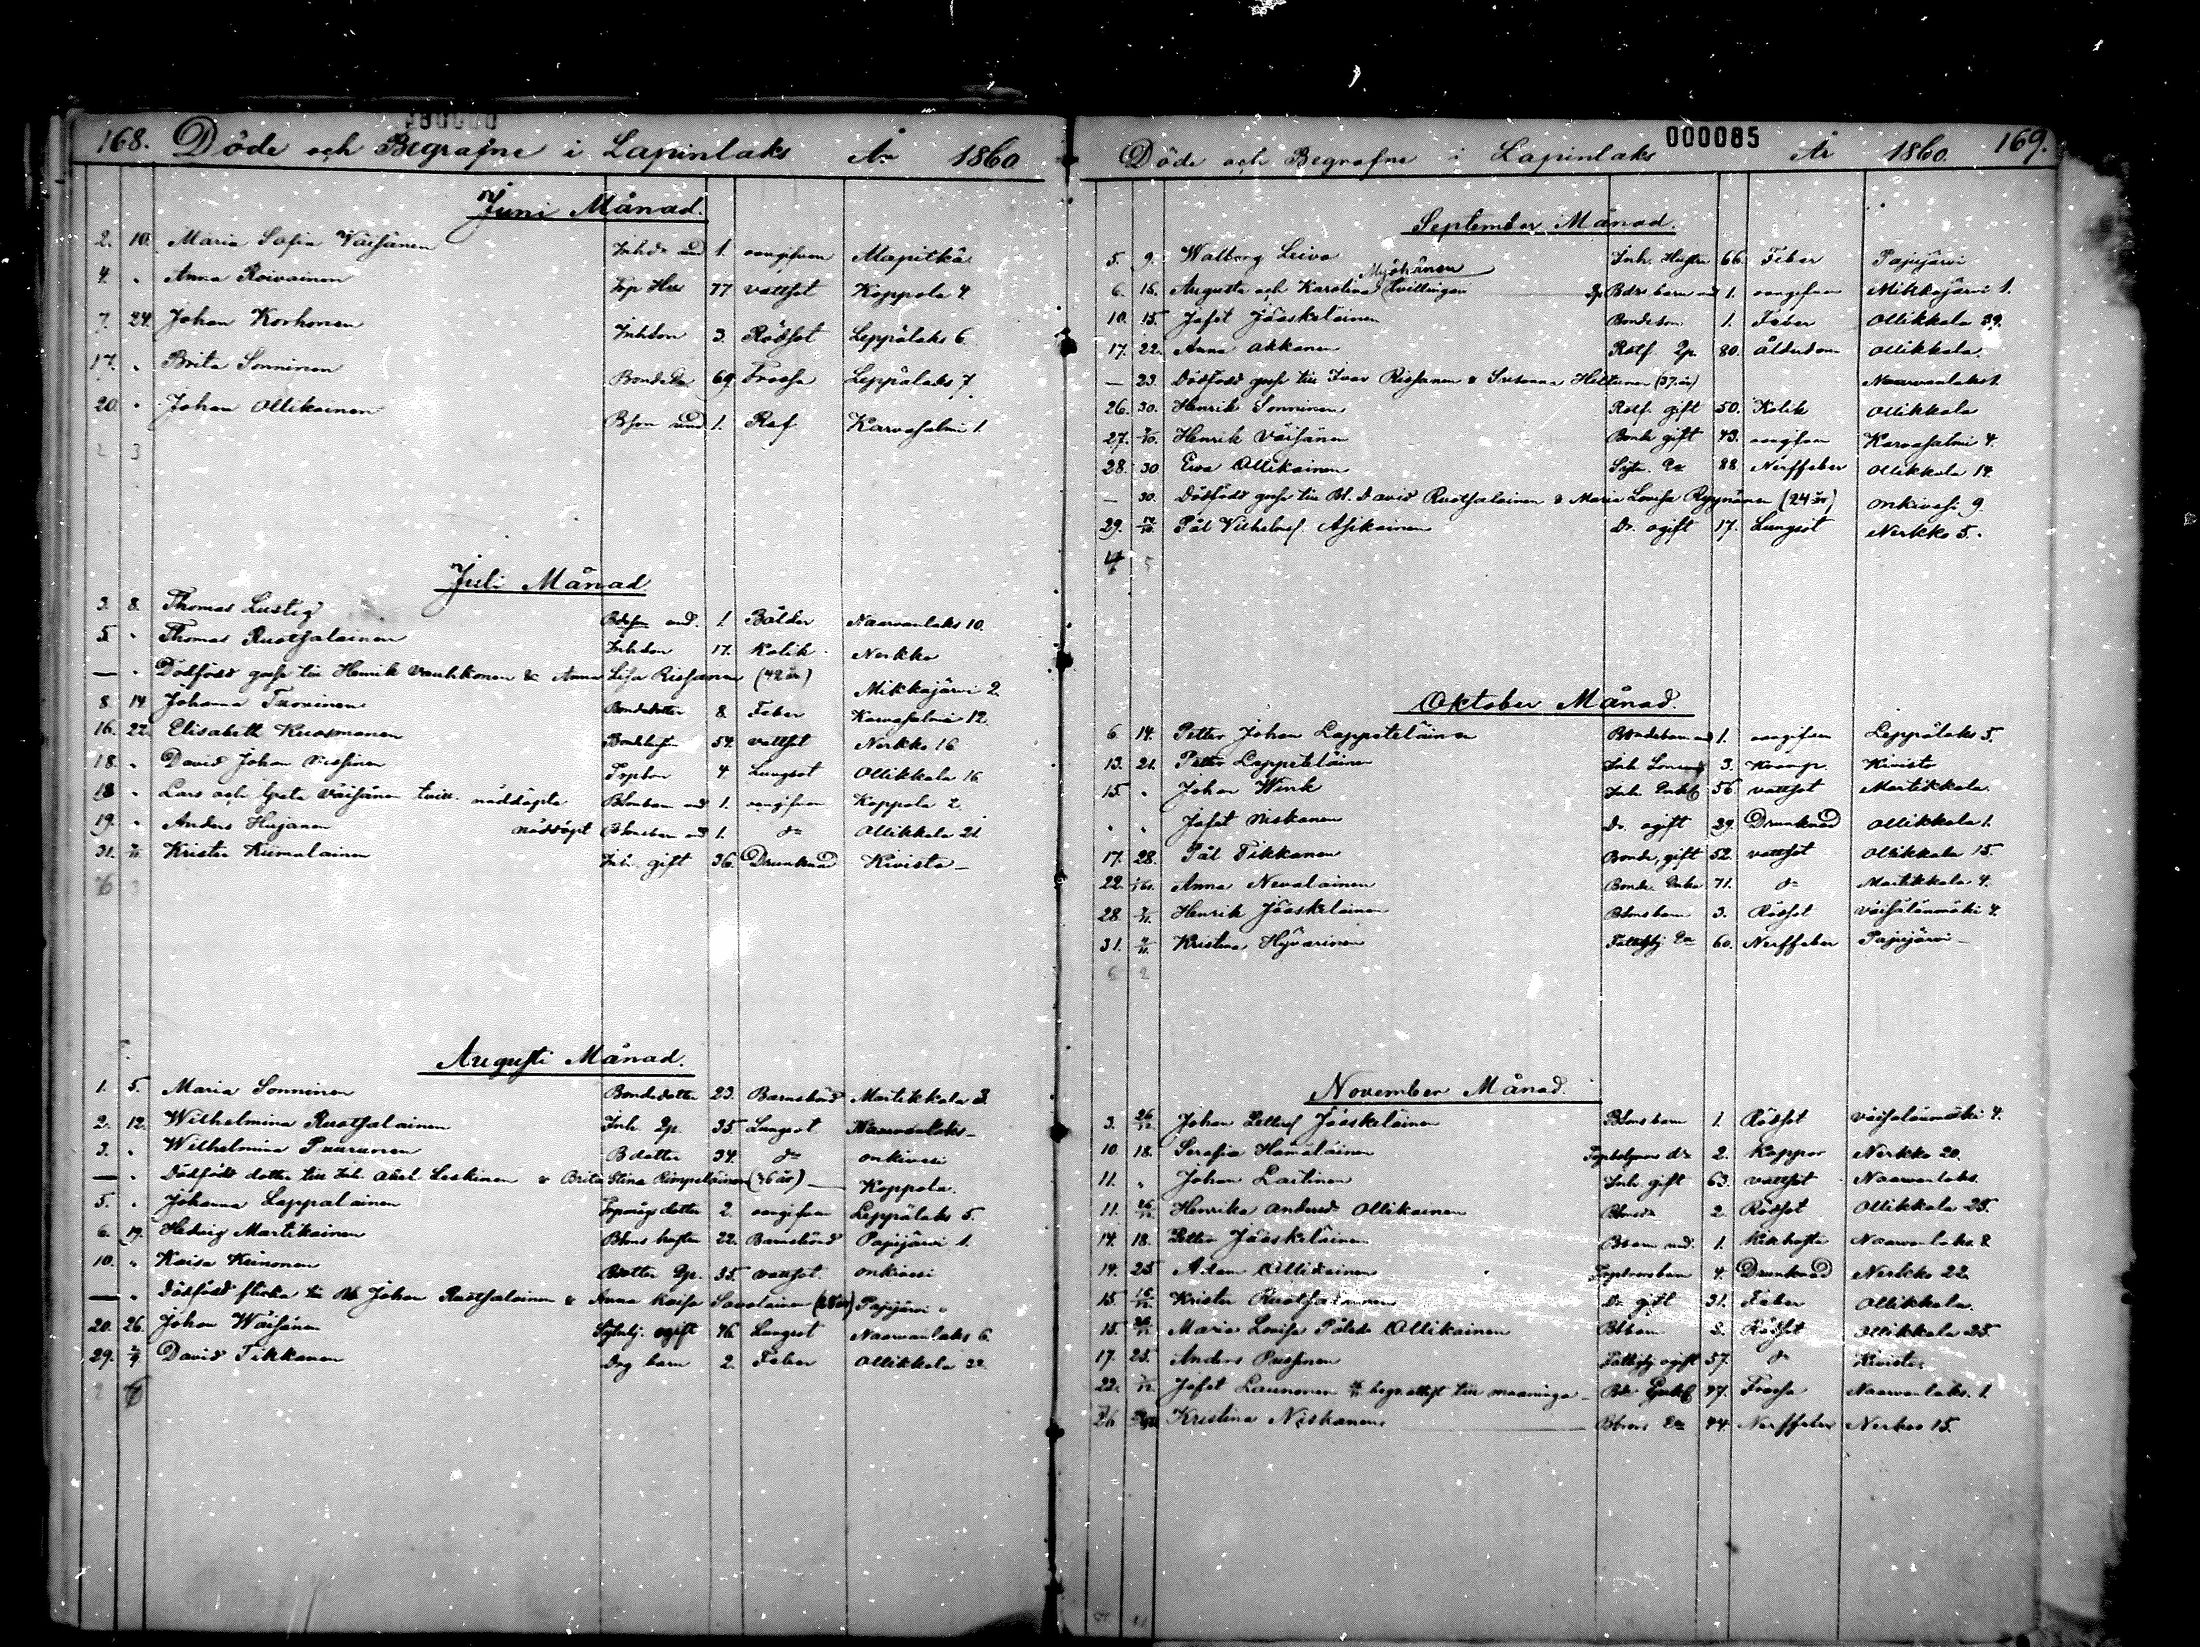 168. Döde och Begrafne i Lapinlaks År 1860
Juni Månad.
2. 10. Maria Sofia Väisänen 1. oangifven Mapitkä
4. " Anna Roivainen 77 vattsot Koppola 4.
7. 24. Johan Korhonen Inhson 3. Rödsot Leppälaks 6
17. " Brita Sonninen 69. Frossa Leppälaks 7.
20. " Johan Ollikainen Bson und 1. Ref Karvasalmi 1.
2 3
Juli Månad
3. 8. Thomas Lustig und. 1. Bölder Naarvanlaks 10.
5. " Thomas Ruotsalainen Inhson 17. Kolik Nerkko
— " Dödfödd gosse till Henrik Vauhkonen & Anna Lisa Rissanen (42 år) Mikkajärvi 2.
8. 14 Johanna Tuovinen Bondedotter 8 Feber Karvasalmi 12.
16. 22. Elisabeth Kuosmanen 54. vattsot Nerkko 16
18. " David Johan Nissinen Torpson 4 Lungsot Ollikkala 16
18 " Lars och Greta Väisänen tvill. nöddöpte und 1. oangifven Koppola 2.
19. " Anders Hujanen nöddöpt und 1. do Ollikkala 21
31. Krister Kumalainen Inh. gift 36. Drunknad Kivisto —
Augusti Månad.
1. 5. Maria Sonninen Bondedotter 23. Barnsbörd Martikkala 3.
2. 12. Wilhelmina Ruotsalainen Inh. 2p. 35 Lungsot Naarvanlaks —
3. " Wilhelmina Puurunen B dotter 34. do Onkivesi
— " Dödfödd dotter till Inh. Axel Leskinen & Brita Stina Rimpeläinen (46 år) — Koppola.
5. " Johanna Lappalainen dotter 2. oangifven Leppälaks 5.
6. 19. Hedvig Martikainen Bdens hustru 22. Barnsbörd Pajujärvi 1.
10. " Kaisa Keinonen Bdotter 2p. 35. vattsot Onkivesi
— " Dödfödd flicka till Bd. Johan Ruotsalainen & Anna Kaisa Savolainen Pajujärvi
20. 26. Johan Wäisänen ogift 46. Lungsot Naarvanlaks 6.
29. David Tikkanen barn 2. Feber Ollikkala 22.
000085
Döde och Begrafne i Lapinlaks År 1860. 169.
September Månad.
5. 9. Walborg Leivo Inh. Hustru 66. Feber Pajujärvi
Myöhänen
6. 16. Augusta och Karolina Tvillingar barn und 1. oangifven Mikkajärvi 1.
10. 15. Jafet Jääskeläinen Bondeson 1. Feber Ollikkala 39.
17. 22. Anna Akkanen Rotf. 2p. 80. Ålderdom Ollikkala.
— 23. Dödfödd gosse till Ivar Rissanen & Susanna Hiltunen (37 år) Naarvanlaks 1.
26. 30. Henrik Sonninen Rotf. gift 50. Kolik Ollikkala
27. Henrik Väisänen Bonde gift 43. oangifven Karvasalmi 4.
28. 30 Ewa Ollikainen 88 Nerffeber Ollikkala 14.
— 30. Dödfödd gosse till Bd. David Ruotsalainen & Maria Lovisa Ryynänen (24 år) Onkivesi 9.
29. Pål Vilhelmss. Asikainen Dr. ogift 17. Lungsot Nerkko 5.
Oktober Månad.
6 14. Petter Johan Lappeteläinen und 1. oangifven Leppälaks 5.
13. 21. Petter Lappeteläinen Inh. 3. Kivisto
15. " Johan Wink Inh. Enkl. 56 vattsot Martikkala.
" " Jafet Niskanen Dr. ogift 29. Drunknad Ollikkala 1.
17. 28. Pål Tikkanen Bonde, gift 52. vattsot Ollikkala 15.
22. Anna Nevalainen Bonde Enka 71. do Martikkala 4.
28. Henrik Jääskeläinen Bdns barn 3. Rödsot Väisälänmäki 4.
31. Kristina Hyvärinen 60. Nerffeber Pajujärvi —
6 2
November Månad.
3. 26/12 Johan Jääskeläinen Bdens barn 1. Rödsot Väisälänmäki 4.
10. 18. Serafia Hämäläinen 2. Koppor Nerkko 20.
11. " Johan Laitinen Inh. gift 63. vattsot Naarvanlaks.
11. Henrika Andersdr Ollikainen 2. Rödsot Ollikkala 25.
14. 18. Petter Jääskeläinen und. 1. Kikhosta Naarvanlaks 8
14. 25 Adam Ollikainen 4. Drunknad Nerkko 22.
15. Krister Ruotsalainen Dr. gift 31. Feber Ollikkala.
15. Maria Lovisa Pålsdr Ollikainen Rödsot Ollikkala 25.
17. 25. Anders Pussinen ogift 57. do Kivisto
22. Jafet Launonen begr. attest till Maaninga — Enkl. 77. Frossa Naarvanlaks. 1.
26 Kristina Niskanen 44. Nerffeber Nerkoo 15.